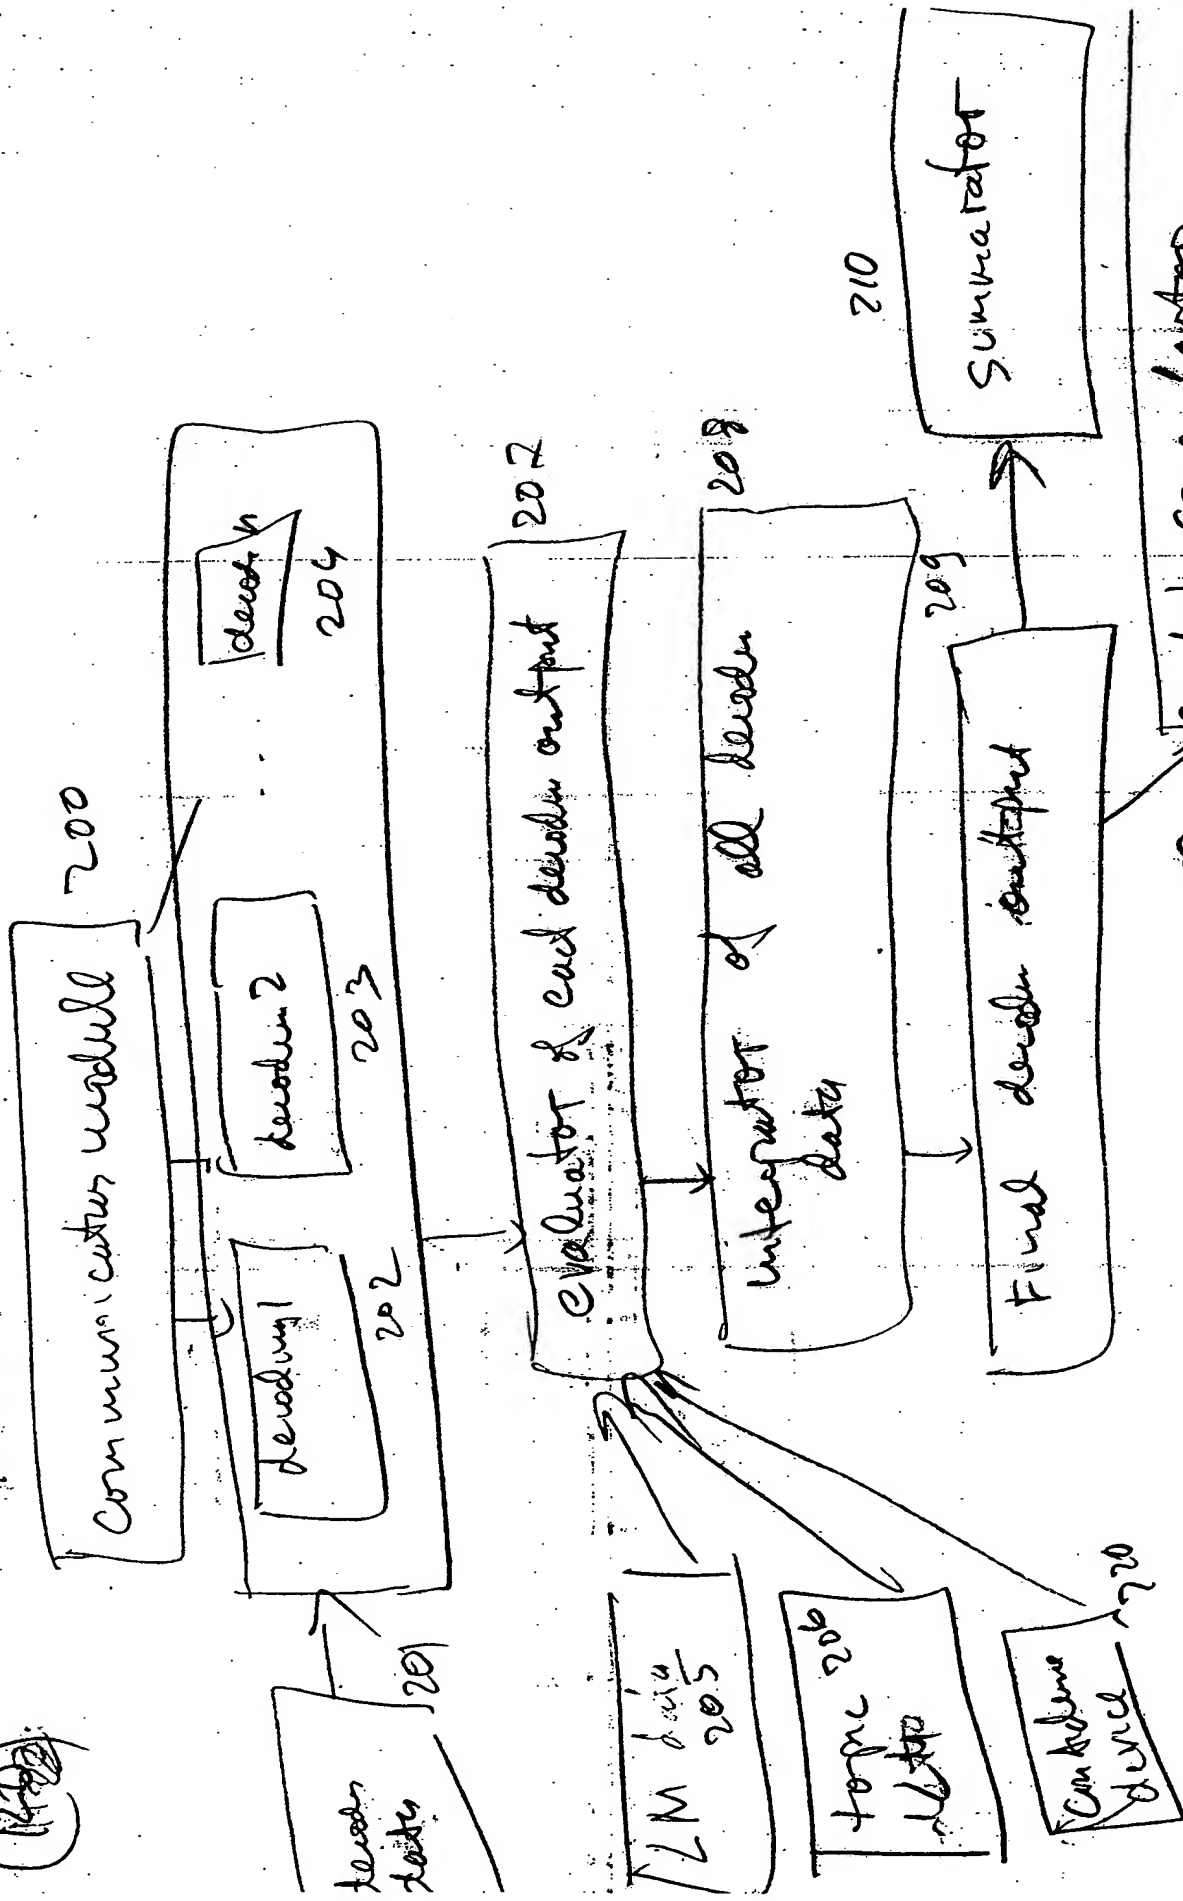 200
Communication module
decoding 1
202
decoder 2
203
. . .
decoder n
204
decoder
data
201
Evaluator of each decoder output
207
LM data
205
topic 206
confidence
device
220
integrator of all decoder
data
208
Final decoder output
209
Summarator
210